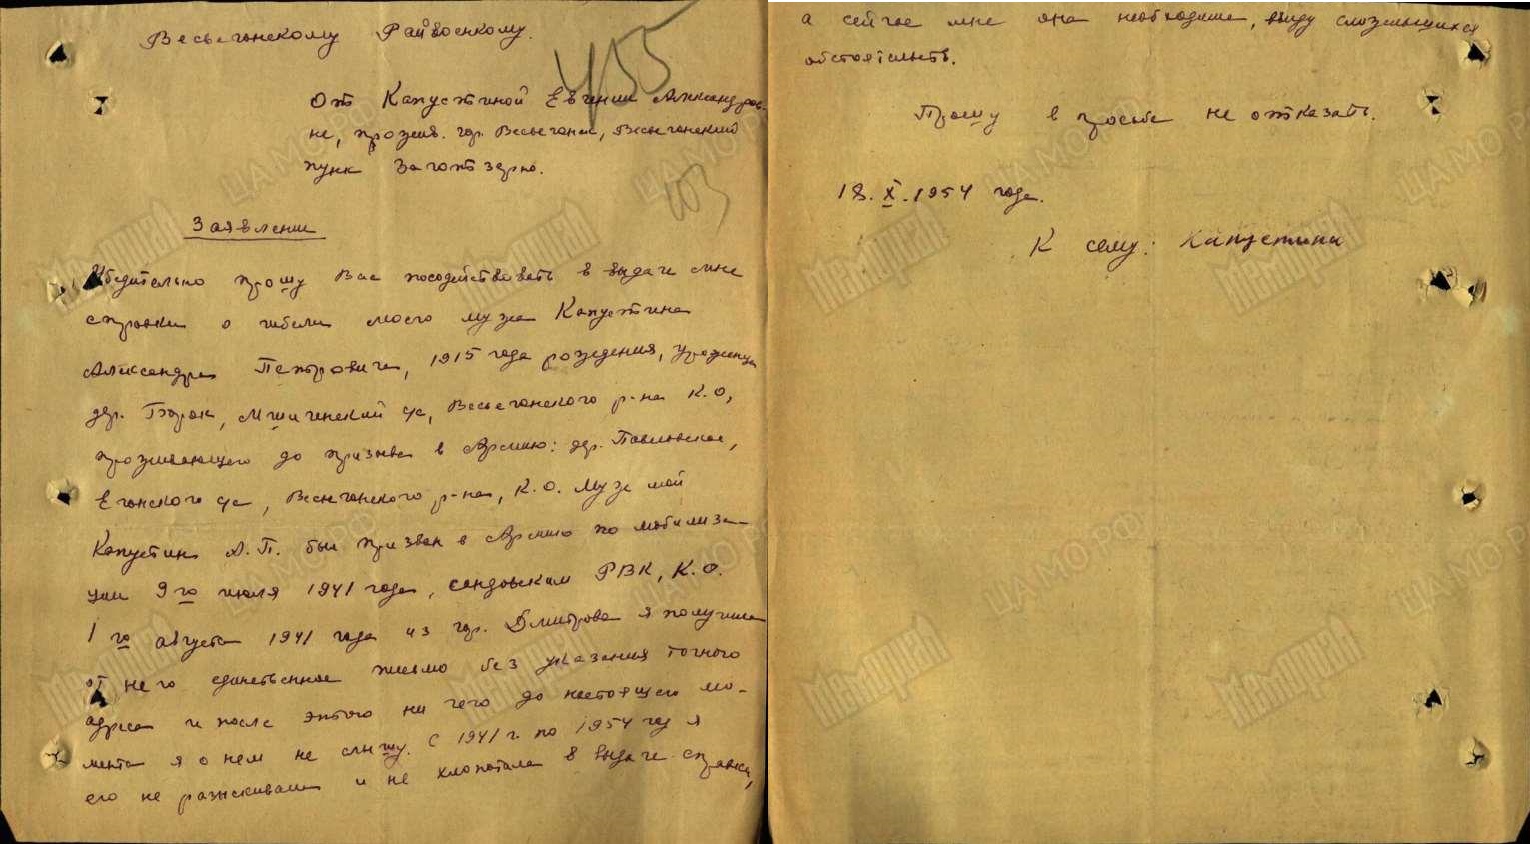 Весьегонскому Райвоенкому.
455
От Капустиной Евгении Александров-
не, прожив. гор. Весьегонск, Весьегонский
пунк Заготзерно.
103
Заявление
Убедительно прошу Вас посодействовать в выдаче мне
справки о гибели моего мужа Капустина
Александра Петровича, 1915 года рождения, уроженца
дер. Борок, с/с, Весьегонского р-на К.О,
проживающего до призыва в Армию: дер. Павловское,
Егонского с/с, Весьегонского р-на, К.О. Муж мой
Капустин А.П. был призван в Армию по мобилиза-
ции 9го июля 1941 года, сандовским РВК, К.О.
1го августа 1941 года из гор. Дмитрова я получила
от него единственное письмо без указания точного
адреса и после этого ни чего до настоящего мо-
мента я о нем не слышу. С 1941 г. по 1954 год я
его не разыскивала и не хлопотала в выдаче справки,
а сейчас мне она необходима, ввиду сложившихся
обстоятельств.
Прошу в просьбе не отказать.
18.X.1954 года.
К сему: Капустина
ЦА МО РФ
Мемориал